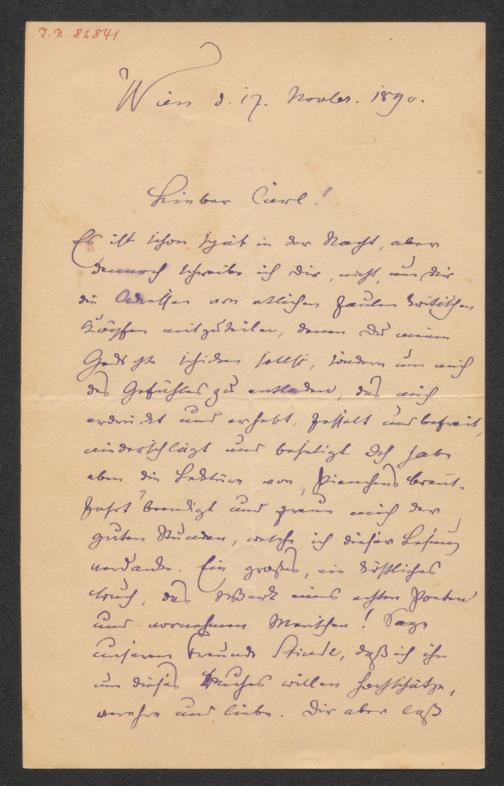 J. N. 82841
Wien d. 17. Novber. 1890.
Lieber Carl!
Es ist schon spät in der Nacht, aber
dennoch schreibe ich Dir, nicht, um Dir
die Adressen von etlichen faulen kritischen
Köpfen mitzuteilen, denen Du meine
Gedichte schicken sollst, sondern um mich
des Gefühles zu entladen, das mich
erdrückt und erhebt, fesselt und befreit,
niederschlägt und beseligt. Ich habe
eben die Lektüre von "Pienchens Braut-
fahrt" beendigt und freue mich der
guten Stunden, welche ich dieser Lesung
verdanke. Ein großes, ein köstliches
Buch, das Werk eines echten Poeten
und vornehmen Menschen! Sage
unserem Freunde Stinde, daß ich ihn
um dieses Buches willen hochschätze,
verehre und liebe. Dir aber laß